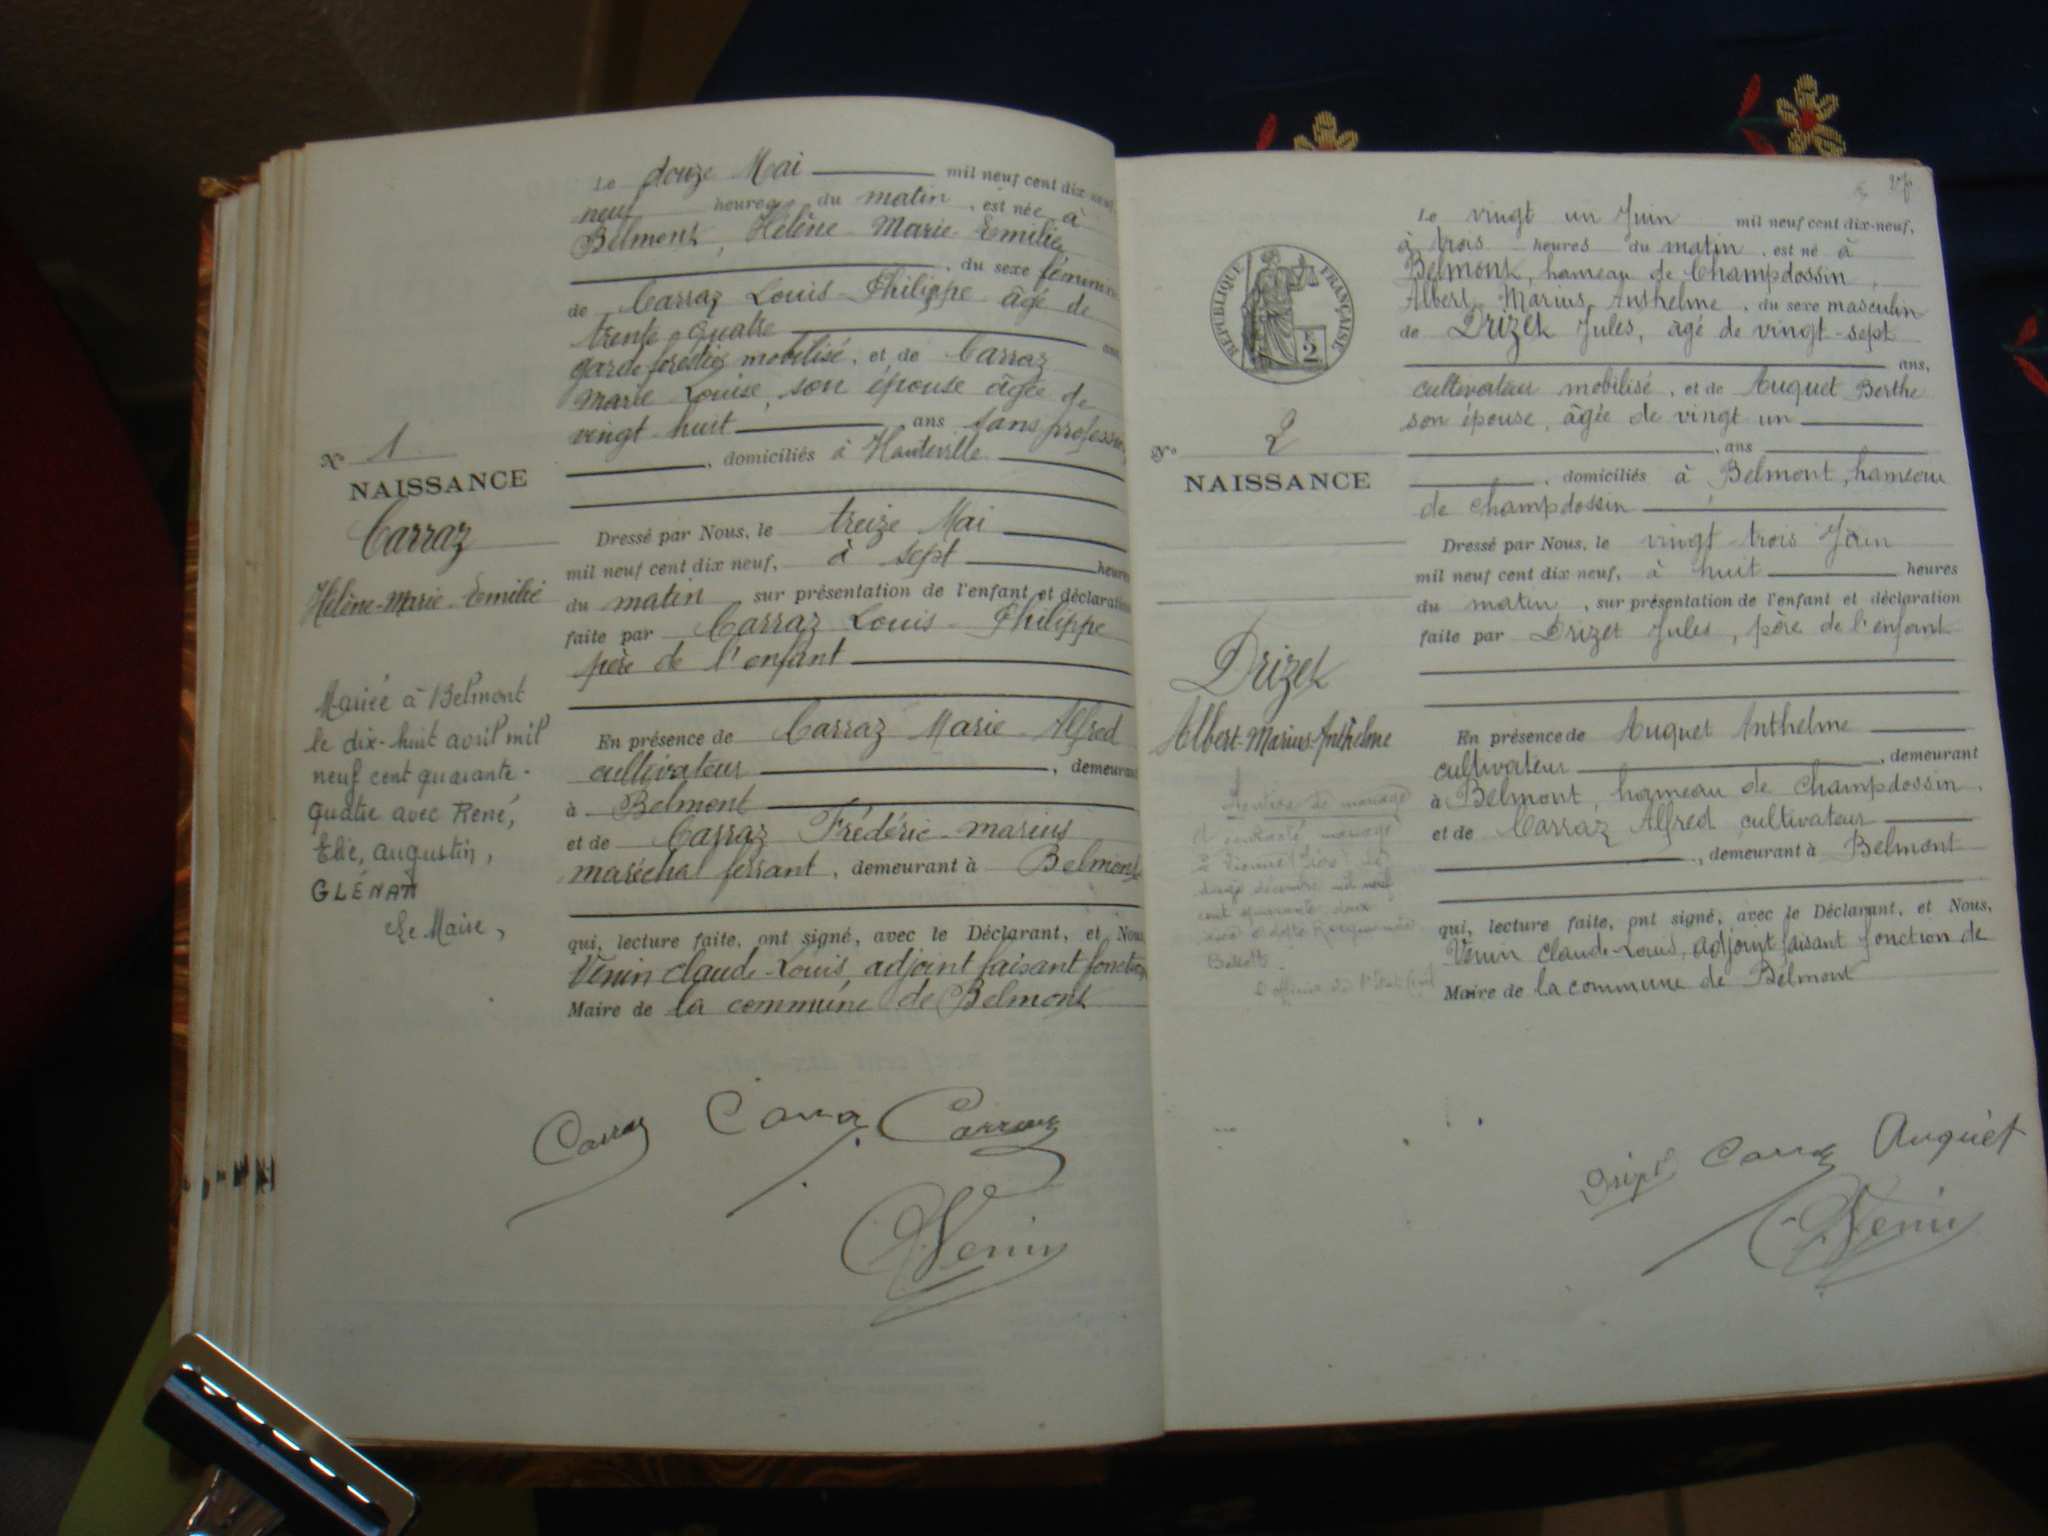 Le douze Mai mil neuf cent dix neuf
neuf heures du matin, est née à
Belmont, Hélène Marie Emilie
, du sexe féminin
de Carraz Louis-Philippe âgé de
trente quatre ans
garde forestier mobilisé, et de Carraz
Marie Louise, son épouse âgée de
vingt huit ans sans profession
, domiciliés à Hauteville
N° 1
NAISSANCE
Carraz
Hélène-Marie-Emilie
Mariée à Belmont
le dix-huit avril mil
neuf cent quarante-
quatre avec René,
Elie, Augustin,
GLÉNAT
Le Maire,
Dressé par Nous, le treize Mai
mil neuf cent dix neuf, à sept heures
du matin sur présentation de l'enfant et déclaration
faite par Carraz Louis-Philippe
père de l'enfant
En présence de Carraz Marie-Alfred
cultivateur, demeurant
à Belmont
et de Carraz Frédéric-marius
maréchal ferrant, demeurant à Belmont
qui, lecture faite, ont signé, avec le Déclarant, et Nous
Venin claude-Louis adjoint faisant fonction
Maire de la commune de Belmont
Carraz Carraz Carraz
Venin
RÉPUBLIQUE FRANÇAISE
Le vingt un Juin mil neuf cent dix-neuf,
à trois heures du matin, est né à
Belmont, hameau de Champdossin,
Albert Marius Anthelme, du sexe masculin
de Drizet Jules, âgé de vingt-sept
ans,
cultivateur mobilisé, et de Auguet Berthe
son épouse, âgée de vingt un
, ans
, domiciliés à Belmont, hameau
de Champdossin
N° 2
NAISSANCE
Drizet
Albert-Marius-Anthelme
Mention de mariage
A contracté mariage
à Vienne (Isère) le
décembre mil neuf
cent quarante deux
avec
L'officier de l'Etat Civil
Dressé par Nous, le vingt-trois Juin
mil neuf cent dix neuf, à huit heures
du matin, sur présentation de l'enfant et déclaration
faite par Drizet Jules, père de l'enfant
En présence de Auguet Anthelme
cultivateur, demeurant
à Belmont, hameau de Champdossin,
et de Carraz Alfred cultivateur
, demeurant à Belmont
qui, lecture faite, ont signé, avec le Déclarant, et Nous,
Venin Claude-Louis, adjoint faisant fonction de
Maire de la commune de Belmont
Drizet Carraz Auguet
Venin